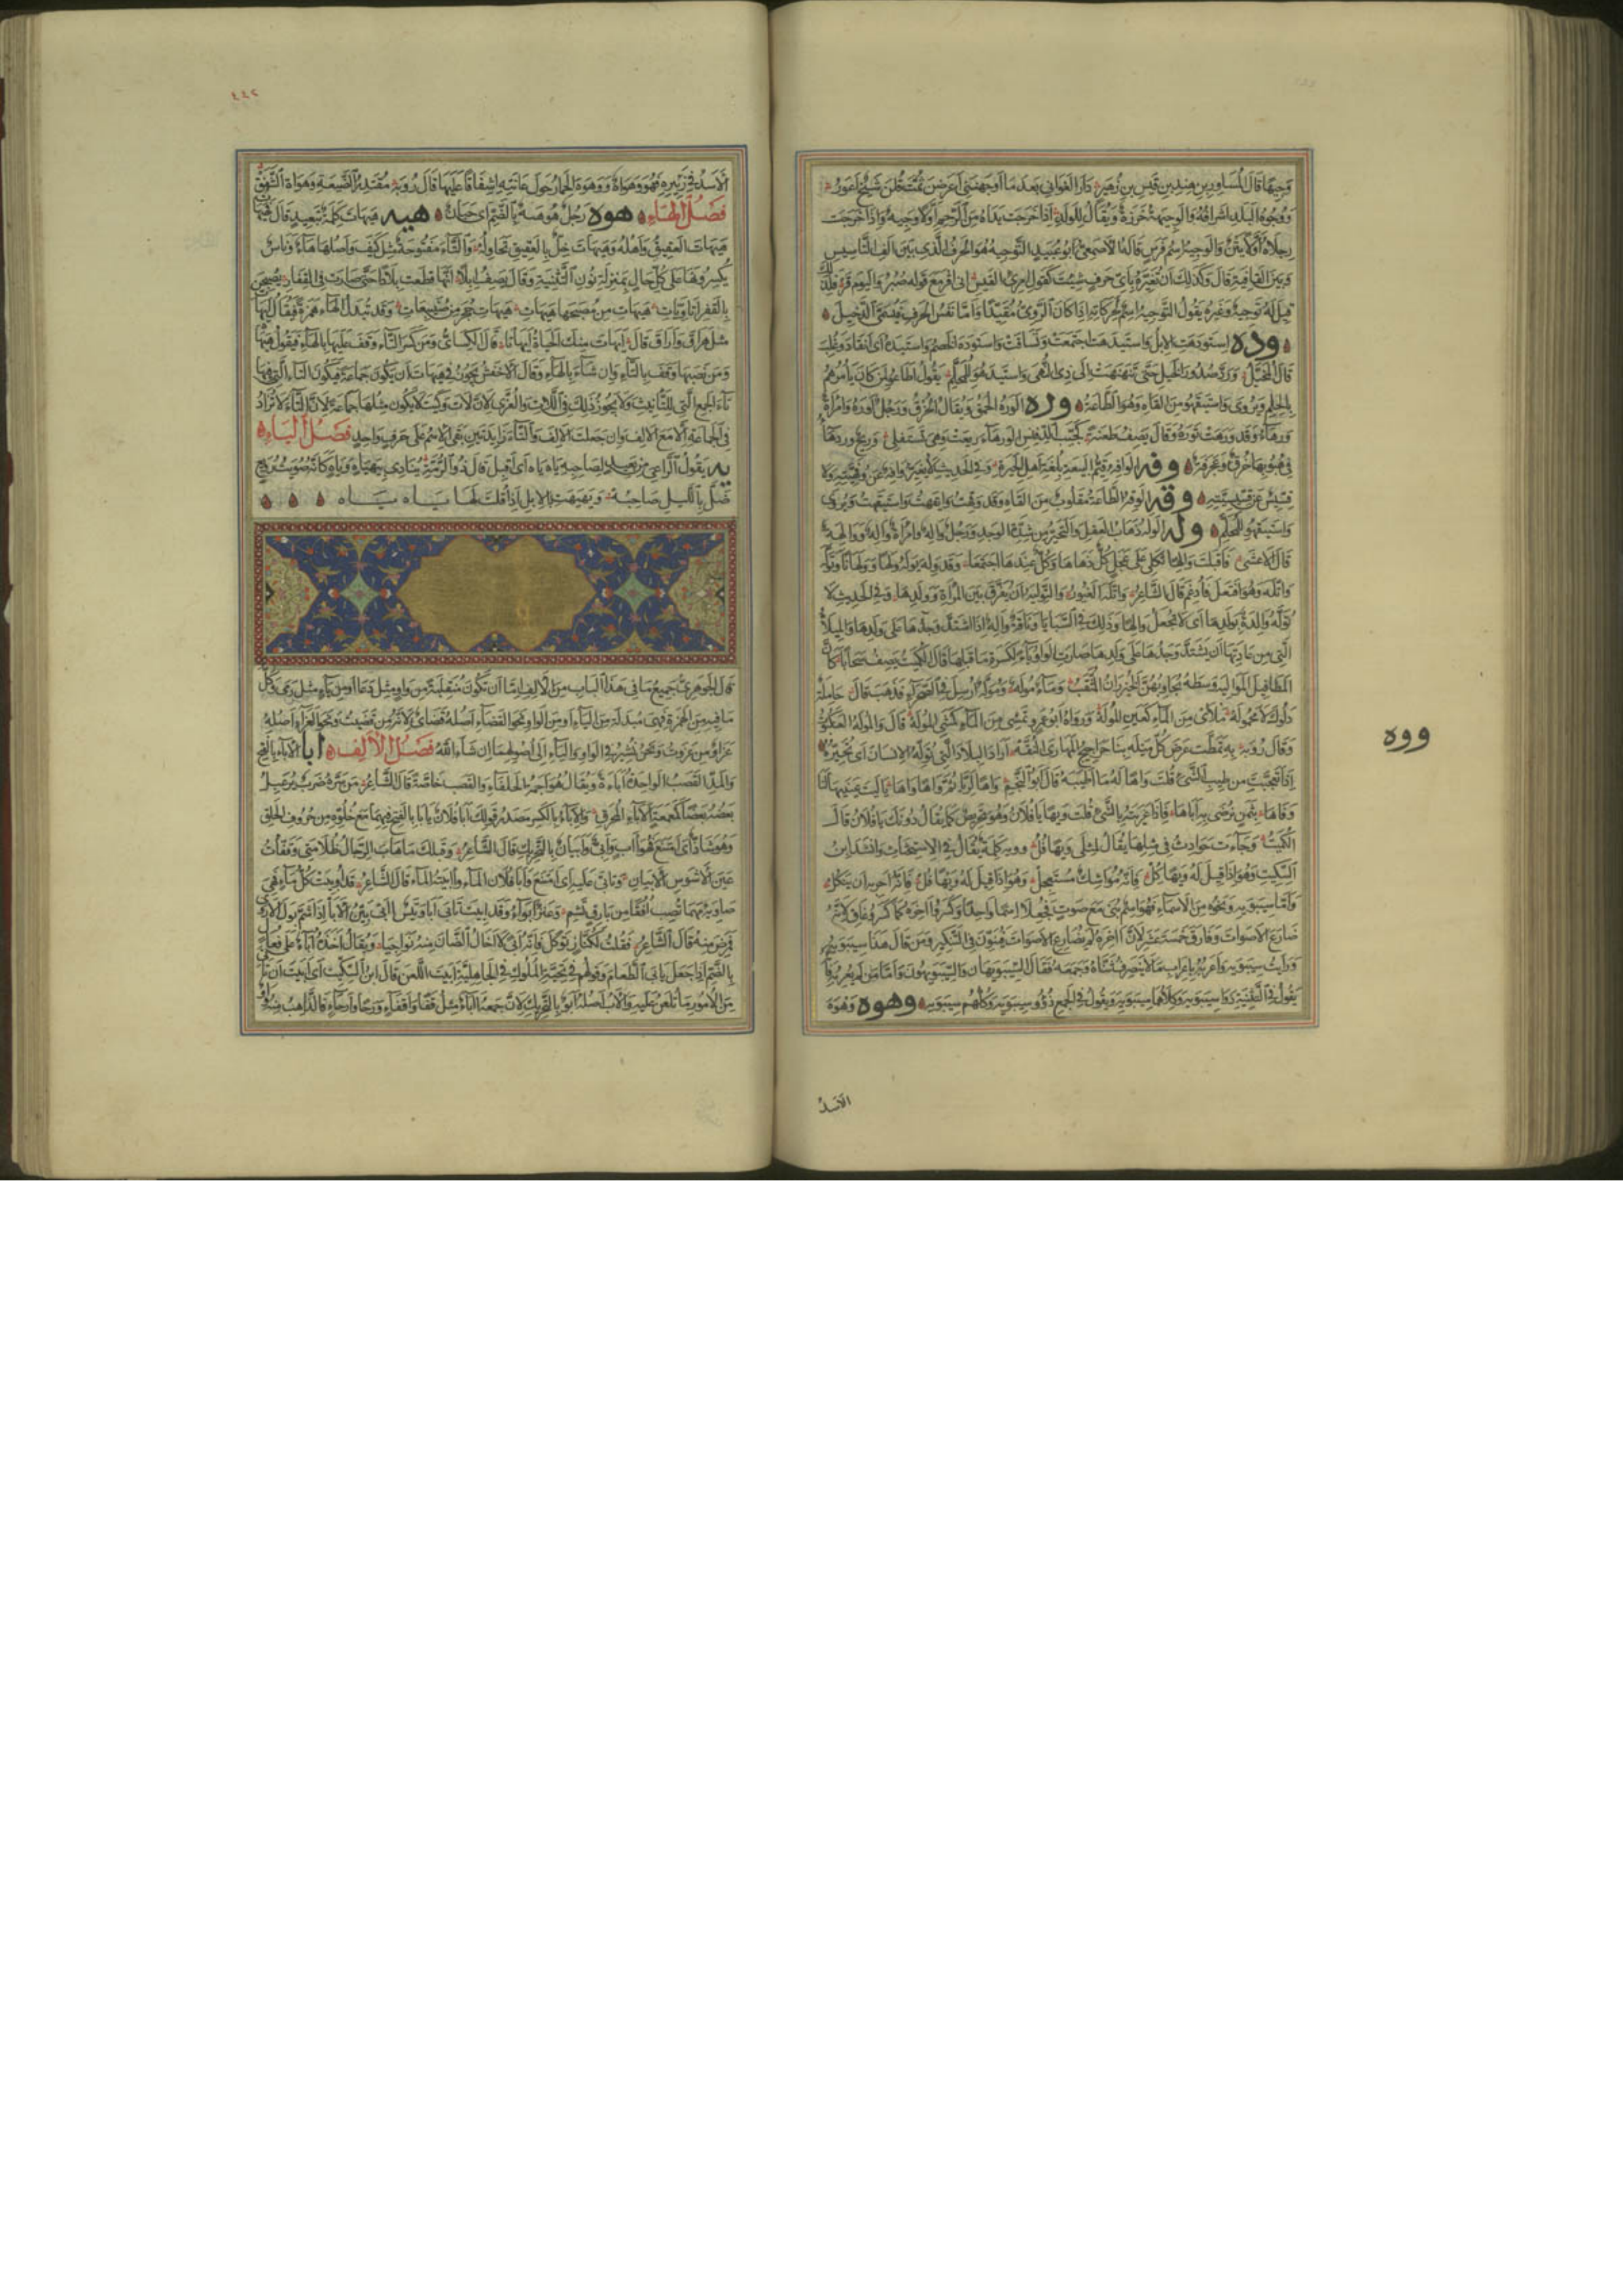 وَجيهًا قال المساور بن هند بن قيس بن زهير دار الغواني بعد ما اوجهنني اعرضن ثمت قلن شيخ اعور
ووجوه البلد اشرافه والوجيهة خرزة ويقال للولد اذا خرجت يداه من الرحم اولا وجيه واذا خرجت
رجلاه اولا يتن والوجيه اسم فرس قاله الاصمعي ابو عبيد التوجيه هو الحرف الذي بين الف التاسيس
وبين القافية قال وكذلك ان تغيره باي حرف شئت كقول امرئ القيس اني افر مع قوله صبر واليوم قر
قيل له توجيه وغيره يقول التوجيه اسم لحركاته اذا كان الروي مقيدا واما نفس الحرف فيسمى الدخيل
وده استودهت الابل واستيدهت اجتمعت وانساقت واستوده الخصم واستيده اي انقاد وغلب
قال المخبل ورد صدور الخيل حتى تنهنهت الى ذي النهى واستيدهوا للمحلم يقول اطاعوا لمن كان يأمرهم
بالحلم ويروى واستيقهوا من القاه وهو الطاعة وره الوره الحمق ويقال الخرق ورجل اوره وامراة
ورهاء وقد ورهت توره وقال يصف طعنة كجيب الدفنس الورهاء ريعت وهي تستفلي وريح ورهاء
في هبوبها خرق وعجرفة وفه الوافه قيم البيعة بلغة اهل الحيرة وفي الحديث لا يغير وافه عن وفهيته ولا
قسيس عن قسيسيته وقه الوقه الطاعة مقلوب من القاه وقد وقهت وايقهت واستيقهت ويروى
واستيقهوا للمحلم وله الوله ذهاب العقل والتحير من شدة الوجد ورجل واله وامراة واله ووالهة
قال الاعشى فاقبلت والها ثكلى على عجل كل دهاها وكل عندها اجتمعا وقد وله يوله ولها وولهانا وتوله
واتله وهو افتعل فادغم قال الشاعر واتله الغيور والتوليه ان يفرق بين المراة وولدها وفي الحديث لا
توله والدة بولدها اي لا تجعل والها وذلك في السبايا وناقة واله اذا اشتد وجدها على ولدها والميلاه
التي من عادتها ان يشتد وجدها على ولدها صارت الواو ياء لكسرة ما قبلها قال الكميت يصف سحابا كان
المطافيل المواليه وسطه يجاوبهن الخيزران المثقب وماء موله وموله ارسل في الصحراء فذهب قال حاملة
دلوك لا محمولة ملأى من الماء كعين المولة ورواه ابو عمرو تمشي من الماء كمشي المولة قال والموله العنكبوت
وقال روبة به تمطت عرض كل ميله بنا حراجيج المهارى النفه اراد البلاد التي توله الانسان اي تحيره
اذا تعجبت من طيب الشئ قلت واها له ما اطيبه قال ابو النجم واها لريا ثم واها واها يا ليت عينيها لنا
وفاها بثمن نرضي به اباها فاذا اغريته بالشئ قلت ويها يا فلان وهو تحريض كما يقال دونك يا فلان قال
الكميت وجاءت حوادث في مثلها يقال لمثلي ويها فل وويه كلمة يقال في الاستحثاث وانشد ابن
السكيت وهو اذا قيل له ويها كل فانه مواشك مستعجل وهو اذا قيل له ويها فل فانه احج به ان ينكل
واما سيبويه ونحوه من الاسماء فهو اسم بني مع صوت فجعلا اسما واحدا وكسر اخره كما كسر غاق لانه
ضارع الاصوات وفارق خمسة عشر لان اخره لم يضارع الاصوات فينون في التنكير فمن قال هذا سيبويه
ورايت سيبويه واعربه باعراب ما لا ينصرف ثناه وجمعه فقال السيبويهان والسيبويهون واما من لم يعربه فانه
يقول في التثنية ذوا سيبويه وكلاهما سيبويه ويقول في الجمع ذوو سيبويه وكلهم سيبويه وهوه وهوه
ووه
الاسد
٤٤٢
الاسد في زئيره فهو وهواه ووهوه الحمار حول عانته اشفاقا عليها قال روبة مقتدر الضيعة وهواه الشفق
فصل الهاء هوه رجل هوهة بالضم اي جبان هيه هيهات كلمة تبعيد قال
هيهات العقيق واهله وهيهات خل بالعقيق نحاوله والتاء مفتوحة مثل كيف واصلها هاء وناس
يكسرونها على كل حال بمنزلة نون التثنية وقال يصف ابلا انها قطعت بلادا حتى صارت في القفار يصبحن
بالقفر اتاويات هيهات من مصبحها هيهات هيهات حجر من صنيبعات وقد تبدل الهاء همزة فيقال ايهات
مثل هراق واراق قال ايهات منك الحياة ايهاتا قال الكسائي ومن كسر التاء وقف عليها بالهاء فيقول هيهاه
ومن نصبها وقف بالتاء وان شاء بالهاء وقال الاخفش يجوز في هيهات ان يكون جماعة فتكون التاء التي فيها
تاء الجمع التي للتانيث ولا يجوز ذلك في اللات والعزى لان لات وكيت لا يكون مثلها جماعة لان التاء لا تزاد
في الجماعة الا مع الالف وان جعلت الالف والتاء زايدتين بقي الاسم على حرف واحد فصل الياء
يه يقول الراعي من بعيد لصاحبه ياه ياه اي اقبل قال ذو الرمة ينادي بيهياه وياه كانه صويت الرويعي
ضل بالليل صاحبه ويهيهت بالابل اذا قلت لها ياه ياه
قال الجوهري جميع ما في هذا الباب من الالف اما ان تكون منقلبة من واو مثل دعا او من ياء مثل رمى وكل
ما فيه من الهمزة فهي مبدلة من الياء او من الواو نحو القضاء اصله قضاي لانه من قضيت ونحو العزاء اصله
عزاو من عزوت ونحن نشير في الواو والياء الى اصولهما ان شاء الله فصل الالف ابا الاباء بالفتح
والمد القصب الواحدة اباءة ويقال هو اجمة الحلفاء والقصب خاصة قال الشاعر من سره ضرب يرعبل
بعضه بعضا كمعمعة الاباء المحرق والاباء بالكسر مصدر قولك ابا فلان يابا بالفتح فيهما مع خلوه من حروف الحلق
وهو شاذ اي امتنع فهو اب وابي وابيان بالتحريك قال الشاعر وقبلك ما هاب الرجال ظلامتي وفقأت
عين الاشوس الابيان وتابى عليه اي امتنع وابا فلان الماء وآبيته الماء قال الشاعر قد اوبيت كل ماء فهي
صاوية مهما تصب افقا من بارق تشم وعنز ابواء وقد ابيت تابى ابا وتيس ابى بين الابا اذا شم بول الاروى
فمرض منه قال الشاعر فقلت لكناز توكل فانه ابى لا اخال الضان منه نواجيا ويقال اخذه اباء على فعال
بالضم اذا جعل يابى الطعام وقولهم في تحية الملوك في الجاهلية ابيت اللعن قال ابن السكيت اي ابيت ان تاتي
من الامور ما تلعن عليه والاب اصله ابو بالتحريك لان جمعه اباء مثل قفا واقفاء ورحا وارحاء فالذاهب منه واو